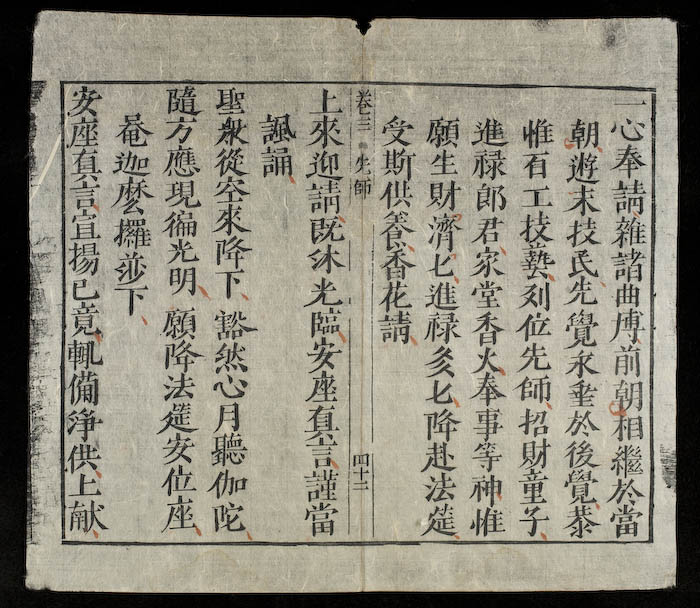 一心奉請雜諸曲傅前朝相繼於當
朝遊末技民先覺永埀於後覺恭
惟百工技藝列位先師招財童子
進禄郎君家堂香火奉事等神惟
願生財濟匕進禄多匕降赴法筵
受斯供養香花請
卷三 先師 四十三
上來迎請旣沐光臨安座真言謹當
諷誦
聖衆從空來降下 豁然心月聽伽陀
隨方應現徧光明 願降法筵安位座
菴迦麽攞莎下
安座真言宣揚已竟輒備淨供上献